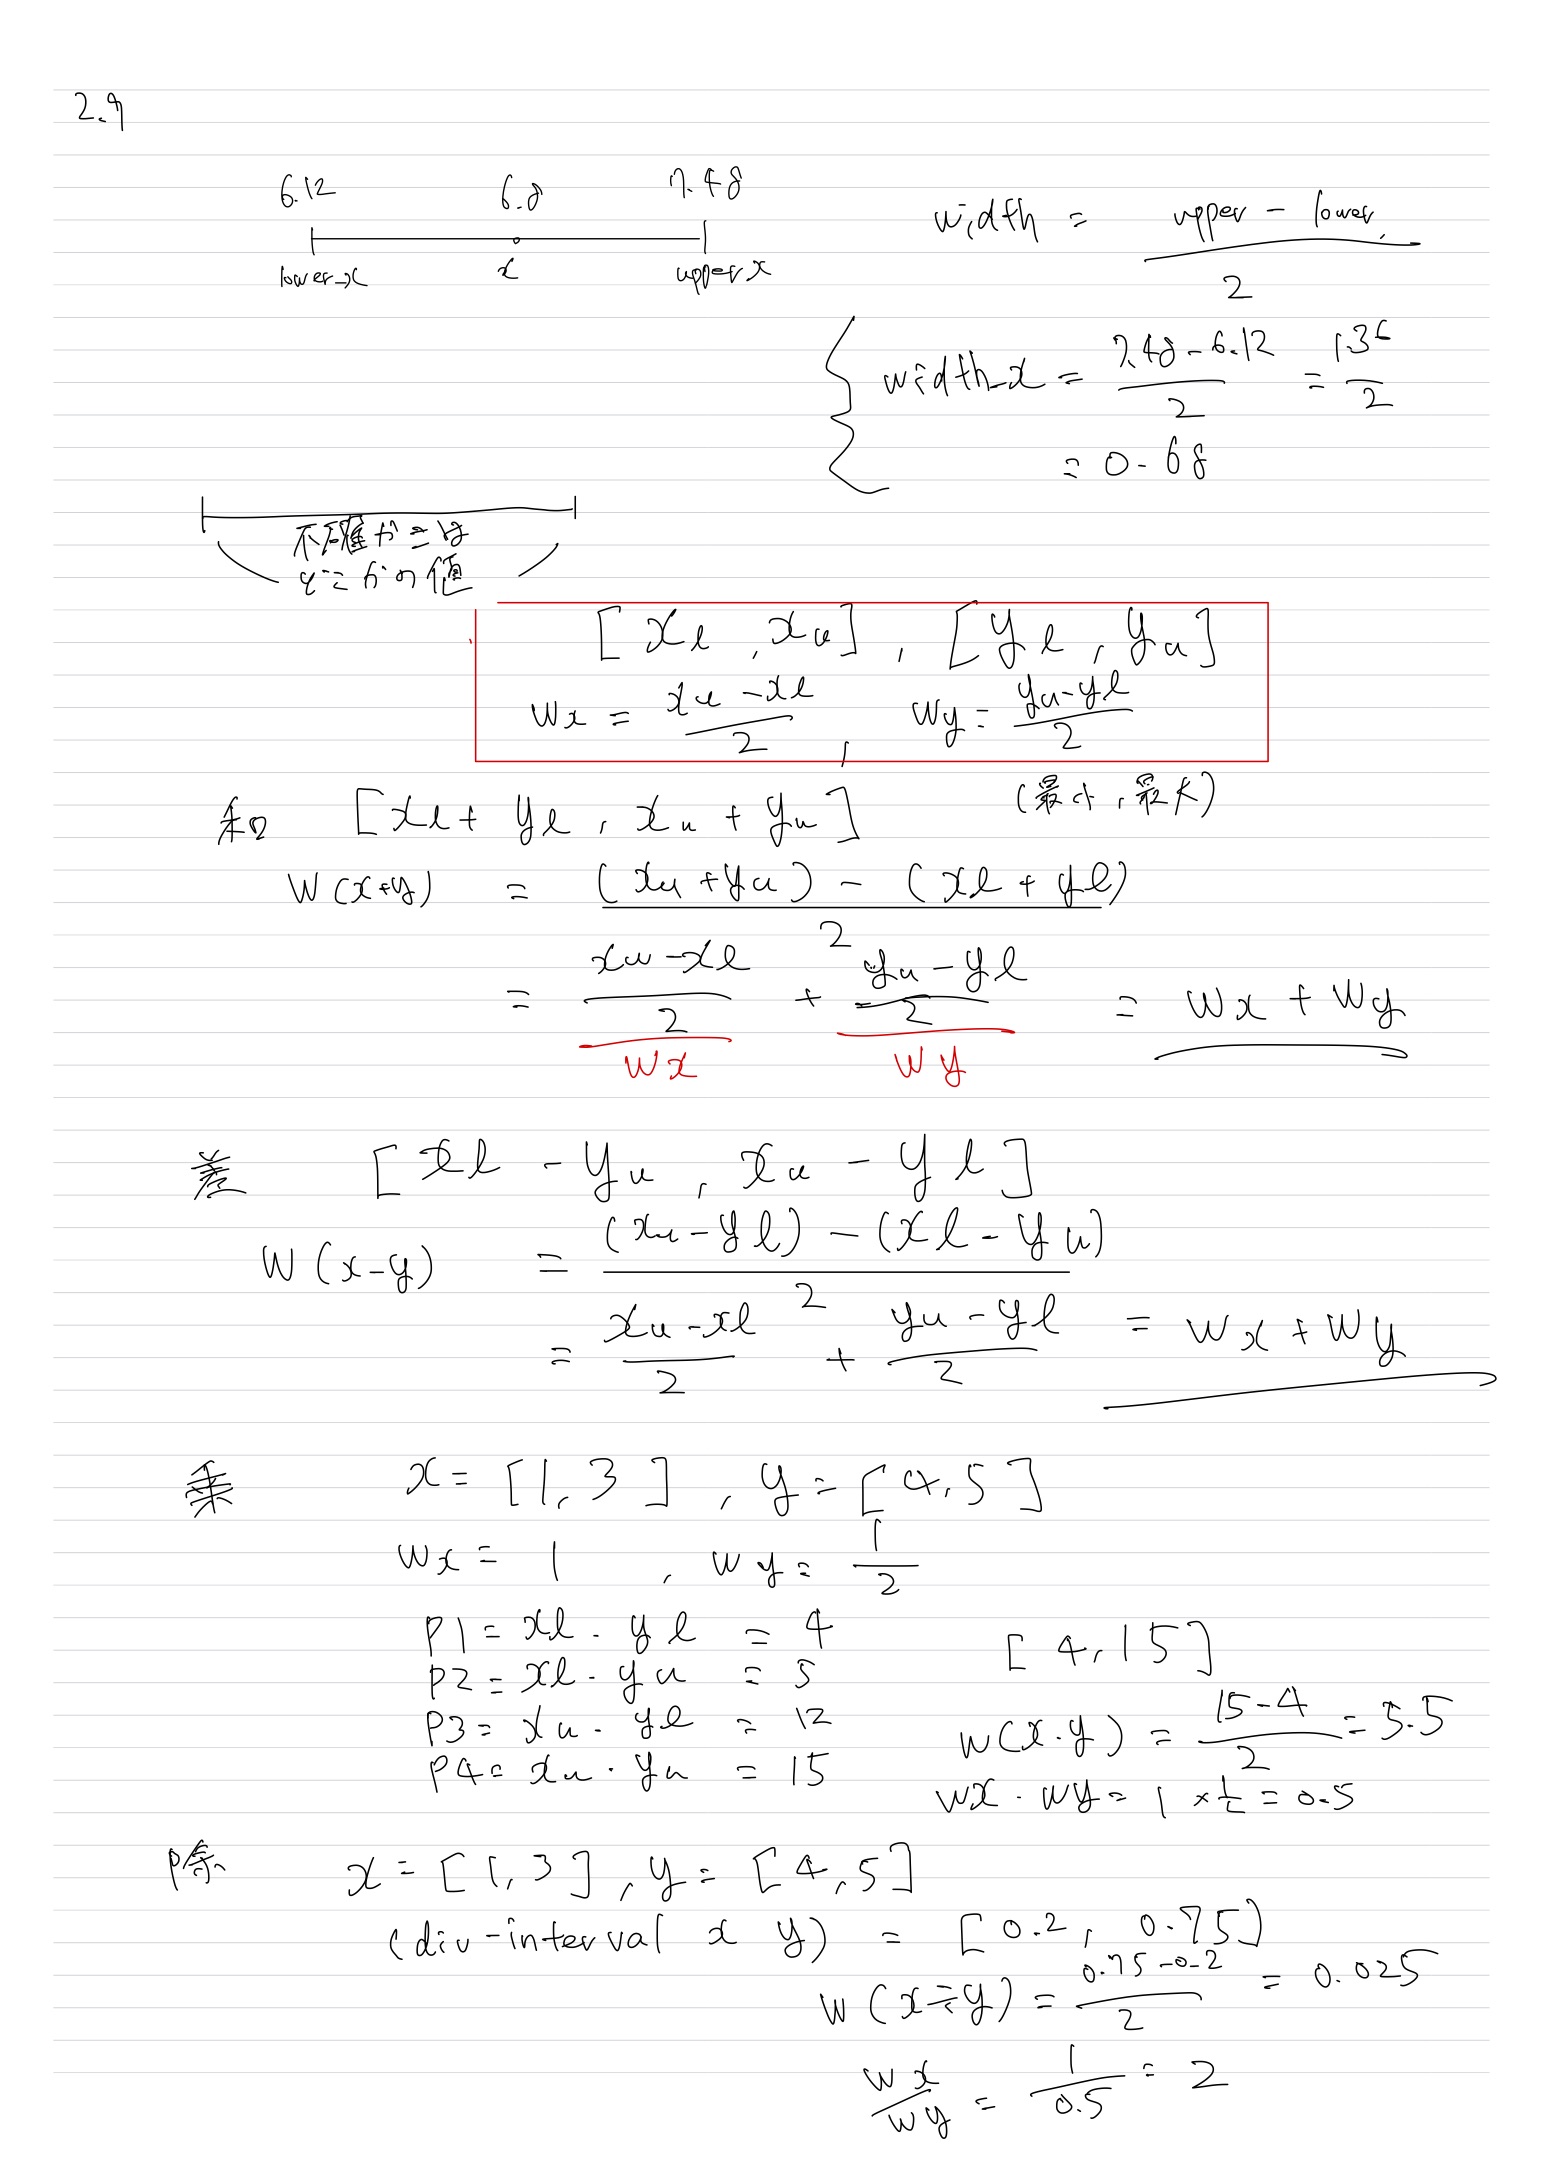 2.9
6.12 6.8 7.48
lower-x x upper x
width = (upper - lower) / 2
width-x = (7.48 - 6.12) / 2 = 1.36 / 2
= 0.68
不確かさは
どこかの値
[xl, xu], [yl, yu]
Wx = (xu - xl) / 2, Wy = (yu - yl) / 2
(最小, 最大)
和 [xl + yl, xu + yu]
W(x+y) = ((xu + yu) - (xl + yl)) / 2
= (xu - xl) / 2 + (yu - yl) / 2 = Wx + Wy
Wx Wy
差 [xl - yu, xu - yl]
W(x-y) = ((xu - yl) - (xl - yu)) / 2
= (xu - xl) / 2 + (yu - yl) / 2 = Wx + Wy
乗 x = [1, 3], y = [4, 5]
Wx = 1, Wy = 1 / 2
P1 = xl・yl = 4
P2 = xl・yu = 5
P3 = xu・yl = 12
P4 = xu・yu = 15
[4, 15]
W(x・y) = (15 - 4) / 2 = 5.5
Wx・Wy = 1 × 1/2 = 0.5
除 x = [1, 3], y = [4, 5]
(div-interval x y) = [0.2, 0.75]
W(x÷y) = (0.75 - 0.2) / 2 = 0.025
Wx / Wy = 1 / 0.5 = 2